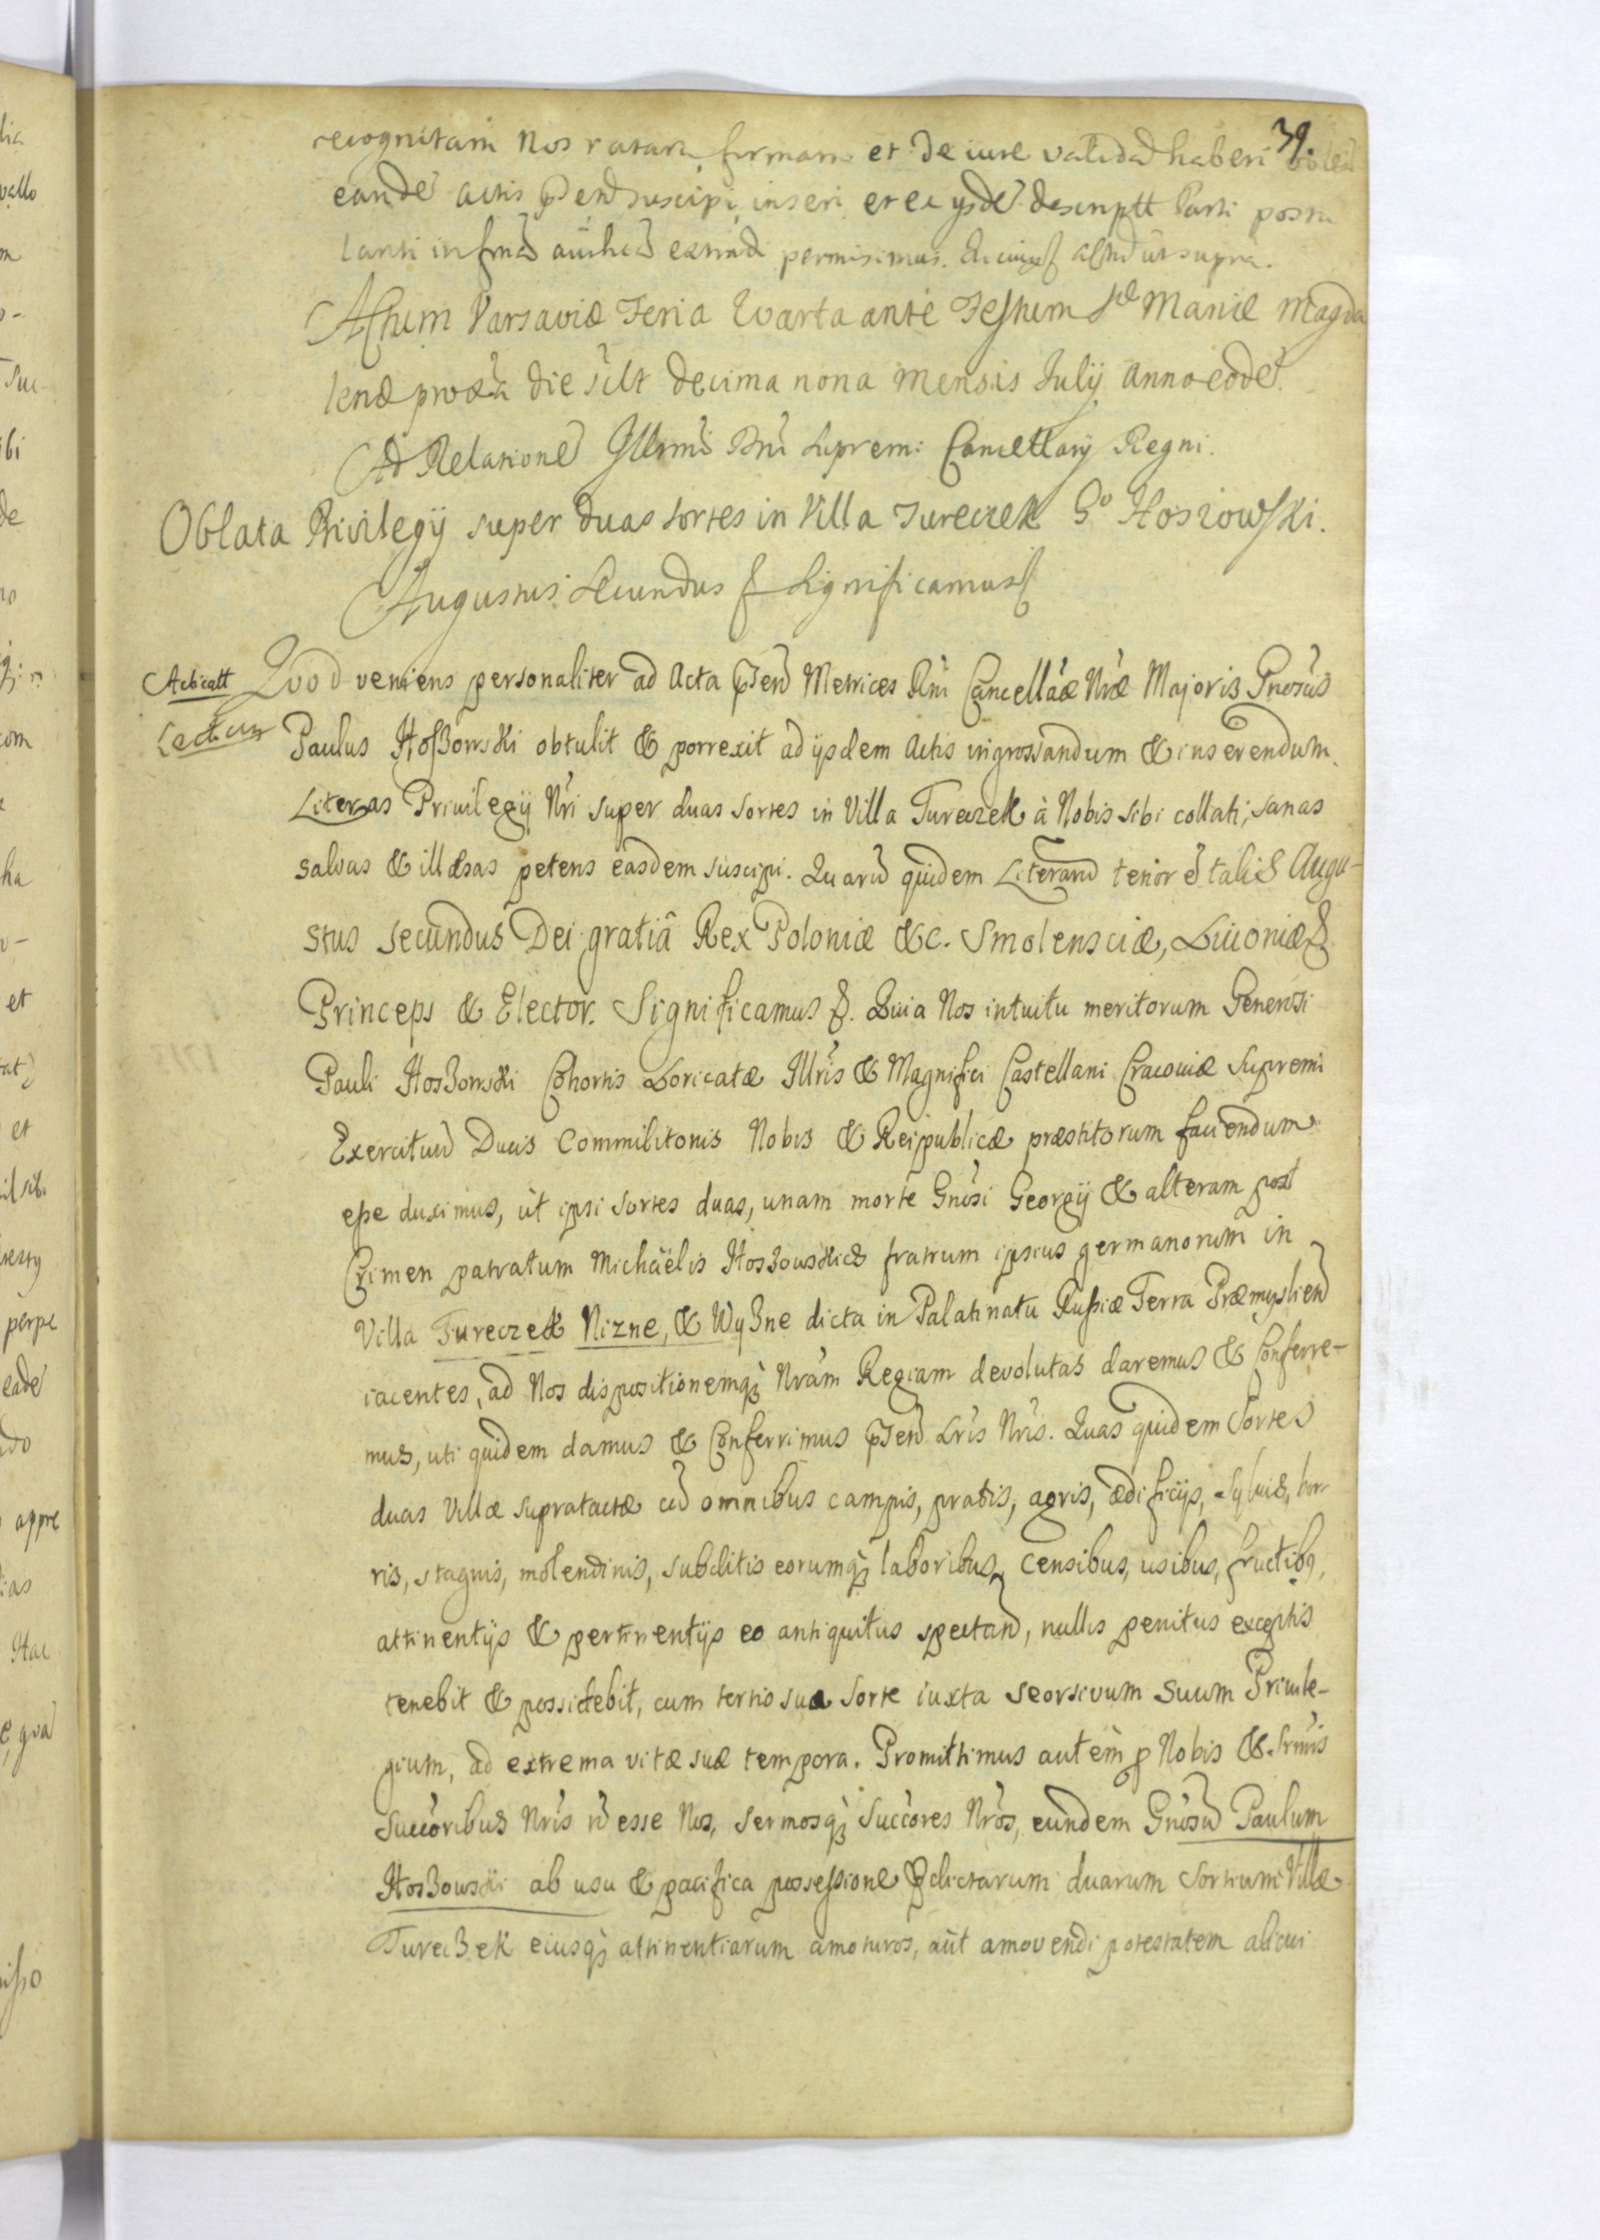 39.
recognitam Nos ratam firmam et de iure validã haberi volen
eande actis pñtib suscipi, inseri, et ex ysde descriptt Parti postu
lanti in formã authcã extradi permisimus. In cuius actũ ut supra.
Actum Varsaviæ Feria Quarta ante Festum Stæ Mariæ Magda
lenæ proxia die scilt decima nona Mensis Julij Anno eode.
Ad Relatione Illrmi Dni Supremi Cancellarij Regni.
Oblata Privilegij super duas sortes in Villa Tureczek Go Hoszowski.
Augustus Secundus & Significamus &
Acticatt
Lectum
Quod veniens personaliter ad Acta pñtiũ Metrices Rni Cancellaæ Nræ Majoris Gnosus
Paulus Hoszowski obtulit & porrexit ad ijsdem Actis ingrossandum & inserendum
Literas Privilegij Nri super duas sortes in Villa Tureczek à Nobis sibi collati, sanas
salvas & illæsas petens easdem suscipi. Quarũ quidem Literarũ tenor ẽ talis Augu-
stus Secundus Dei gratiâ Rex Poloniæ &c. Smolensciæ, Livoniæ &
Princeps & Elector. Significamus &. Quia Nos intuitu meritorum Generosi
Pauli Hoszowski Cohortis Loricatæ Illris & Magnifici Castellani Cracoviæ Supremi
Exercituũ Ducis Commilitonis Nobis & Reipublicæ præstitorum faciendum
esse duximus, ut ipsi sortes duas, unam morte Gnosi Georgij & alteram post
Crimen patratum Michaëlis Hoszowskich fratrum ipsius germanorum in
Villa Tureczek Nizne, & Wyzne dicta in Palatinatu Russiæ Terra Præmysliẽn
iacentes, ad Nos dispositionemq; Nrãm Regiam devolutas daremus & Conferre-
mus, uti quidem damus & Conferrimus pñtib Lris Nris. Quas quidem Sortes
duas Villæ supratactæ cũ omnibus campis, pratis, agris, ædificijs, Sylvis, hor-
ris, stagnis, molendinis, subditis eorumq; laboribus, Censibus, usibus, fructibq,
attinentijs & pertinentijs eo antiquitus spectañ, nullis penitus exceptis
tenebit & possidebit, cum tertio sua Sorte iuxta seorsivum suum Privile-
gium, ad extrema vitæ suæ tempora. Promittimus autem p Nobis & Srmis
Succoribus Nris ñ esse Nos, Sermosq; Succores Nros, eundem Gnosũ Paulum
Hoszowski ab usu & pacifica possessione pdictarum duarum Sortium Villæ
Tureczek eiusq; attinentiarum amoturos, aut amovendi potestatem alicui